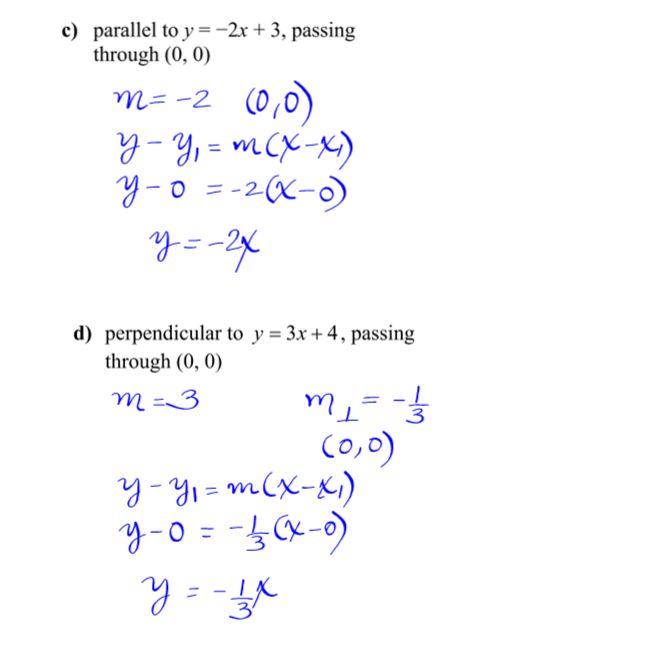 c) parallel to y = −2x + 3, passing
through (0, 0)
m = -2 (0,0)
y - y₁ = m(x-x₁)
y - 0 = -2(x-0)
y = -2x
d) perpendicular to y = 3x + 4, passing
through (0, 0)
m = 3 m⊥ = -1/3
(0,0)
y - y₁ = m(x-x₁)
y-0 = -1/3(x-0)
y = -1/3x